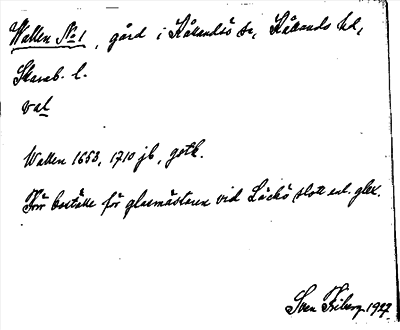 Wallen No 1, gård i Kållandsö sn, Kållands hd,
Skarab. l.
val
Wallen 1653, 1710 jb, geth.
Förr boställe för glasmästaren vid Läckö slott enl. glex.
Sven Friberg 1927.